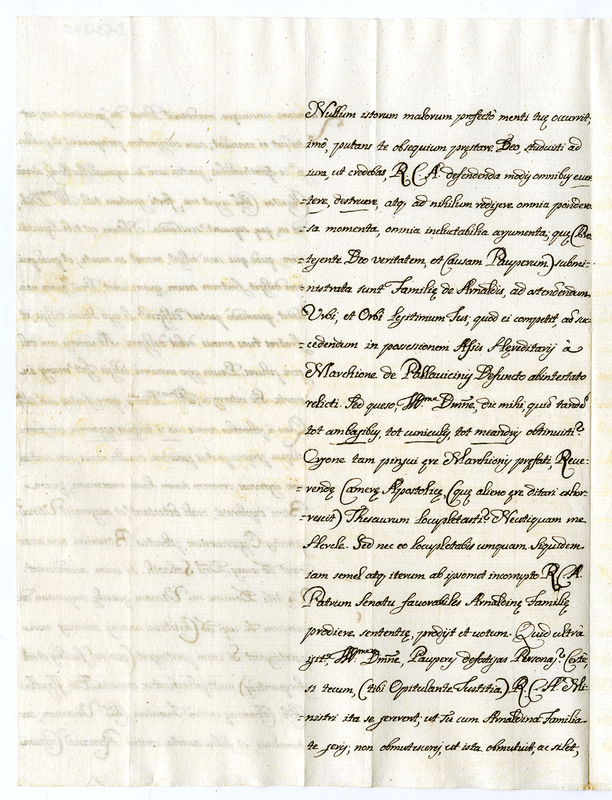 Nullum istorum malorum profectò menti tuę occurrit;
imò, putans te obsequium pręstare Deo, studuisti ad
iura, ut credebas, R. C. A. defendenda modis omnibus euer-
=tere, destruere, atq; ad nihilum redigere omnia pondero-
sa momenta, omnia ineluctabilia argumenta; quę (Pro-
=tegente Deo veritatem, et Causam Pauperum) submi-
=nistrata sunt Familię de Arnaldis, ad ostendendum
Urbi, et Orbi legitimum Ius, quod ei competit, ad suc-
=cedendum in possessionem Assis Hęreditarij à
Marchione de Pallauicinis Defuncto abintestato
relicti. Sed quęso, Illme Dnne, dic mihi, quid tandem
tot ambagibus, tot cuniculis, tot meandris obtinuisti?
Cyone tam pingui ęre Marchionis prefati, Reue-
=rendę Camerę Apostolicę, (quę alieno ęre ditari exhor-
=rescit) Thesaurum locupletasti? Neutiquam me
Hercle. Sed nec eo locupletabis umquam. Siquidem
iam semel atq; iterum ab ipsomet incorrupto R. C. A.
Patrum Senatu fauorabiles Arnaldinę Familię
prodiere sententię, prodijt et uotum. Quid ultrà
Illme Dnne, Pauperes defatigas Personas? Certè,
si tecum, (tibi Opitulante Iustitia) R. C. A. Mi-
=nistri ita se gererent; ut Tu cum Arnaldina Familia
te geris; non obmutesceres, ut ista obmutuit, ac silet;